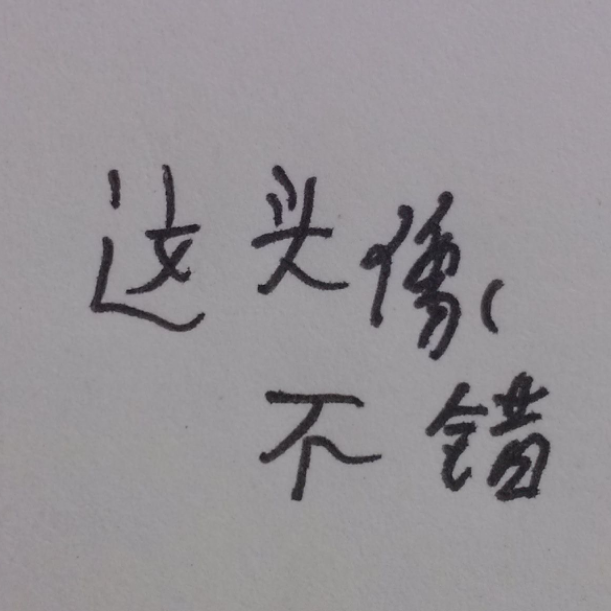 这头像，
不错